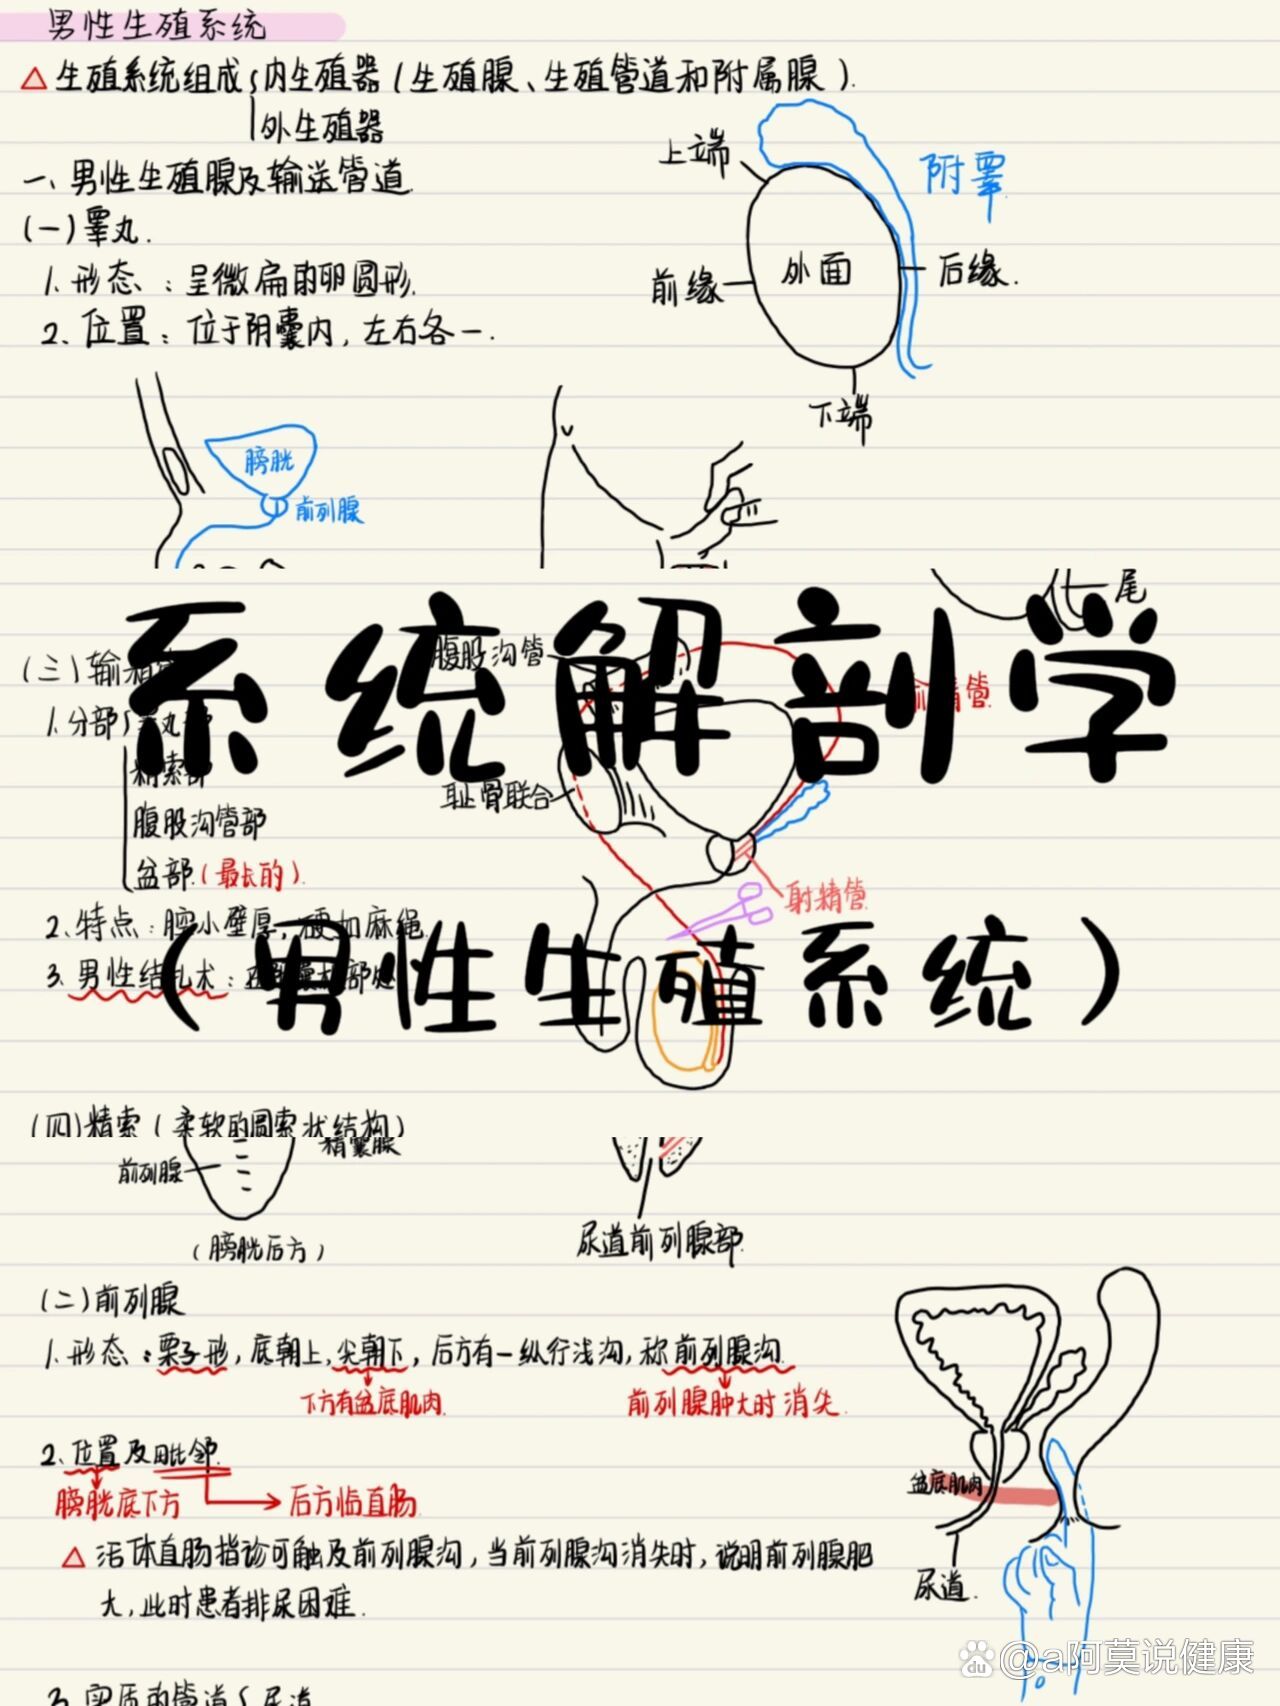 男性生殖系统
△ 生殖系统组成 { 内生殖器(生殖腺、生殖管道和附属腺).
外生殖器
一、男性生殖腺及输送管道.
(一)睾丸.
1. 形态：呈微扁的卵圆形.
2、位置：位于阴囊内，左右各一.
上端
附睾
外面
前缘
后缘.
下端
膀胱
前列腺
尾
系统解剖学
腹股沟管
(三)输
精管
1. 分部
精索部
腹股沟管部
盆部.(最长的).
耻骨联合
射精管
2、特点：腔小壁厚，硬如麻绳.
3. 男性结扎术：
(男性生殖系统)
(四)精索(柔软的圆索状结构)
精囊腺
前列腺
(膀胱后方)
尿道前列腺部.
(二)前列腺
1. 形态：栗子形，底朝上，尖朝下，后方有一纵行浅沟，称前列腺沟.
下方有盆底肌肉.
前列腺肿大时消失.
2、位置及毗邻.
膀胱底下方
后方临直肠.
盆底肌肉
尿道.
△ 活体直肠指诊可触及前列腺沟，当前列腺沟消失时，说明前列腺肥
大，此时患者排尿困难.
3 实质内管道 { 尿道
du @a阿莫说健康